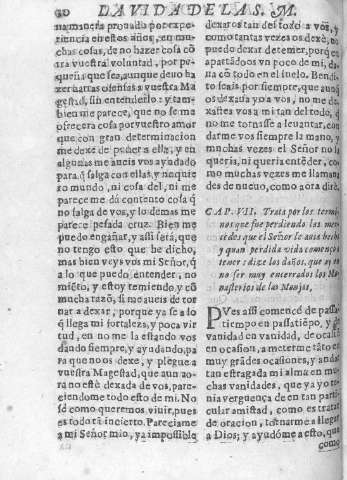 DA VIDA DE LA S. M.
na manera prouado por expe
riencia en estos años, en mu-
chas cosas, de no hazer cosa cõ
tra vuestra voluntad, por pe-
queña que sea, aunque deuo ha
zer hartas ofensas a vuestra Ma
gestad, sin entenderlo: y tam-
bien me parece, que no se me
ofrecera cosa por vuestro amor
que con gran determinacion
me dexe de poner a ella; y en
algunas me aueis vos ayudado
para q̃ salga con ellas, y no quie
ro mundo, ni cosa del, ni me
parece me dà contento cosa q̃
no salga de vos, y lo demas me
parece pesada cruz. Bien me
puedo engañar, y assi serà, que
no tengo esto que he dicho,
mas bien veys vos mi Señor, q̃
a lo que puedo entender, no
miẽto, y estoy temiendo, y cõ
mucha razõ, si me aueis de tor
nar a dexar, porque ya se a lo
q̃ llega mi fortaleza, y poca vir
tud, en no me la estando vos
dando siempre, y ayudando, pa
ra que no os dexe, y plegue a
vuestra Magestad, que aun ao-
ra no estè dexada de vos, pare-
ciendome todo esto de mi. No
sè como queremos viuir, pues
es todo tã incierto. Pareciame
a mi Señor mio, ya impossible
dexaros tan del todo a vos, y
como tantas vezes os dexè, no
puedo dexar de temer, porq̃ en
apartãdoos vn poco de mi, da-
ua cõ todo en el suelo. Bendi-
to seais por siempre, que aunq̃
os dexaua yo a vos, no me de-
xastes vos a mi tan del todo, q̃
no me tornasse a leuantar, con
darme vos siempre la mano, y
muchas vezes el Señor no la
queria, ni queria entẽder, co-
mo muchas vezes me llamaua
des de nueuo, como aora dirè.
CAP. VII. Trata por los termi-
nos que fue perdiendo las mer-
cedes que el Señor le auia hecho
y quan perdida vida començò a
tener: dize los daños, que ay en
no ser muy encerrados los Mo-
nasterios de las Monjas.
PVes assi començè de passa-
tiempo en passatiẽpo, y de
vanidad en vanidad, de ocasiõ
en ocasion, a meterme tãto en
muy grandes ocasiones, y andar
tan estragada mi alma en mu-
chas vanidades, que ya yo te-
nia verguença de en tan parti-
cular amistad, como es tratar
de oracion, tornarme a llegar
a Dios; y ayudòme a esto, que
como